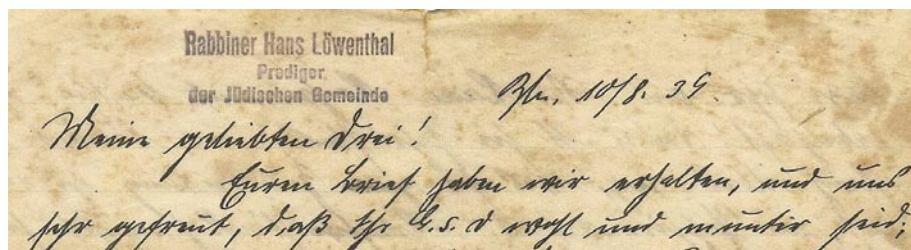 Rabbiner Hans Löwenthal
Prediger
der Jüdischen Gemeinde
Bln. 10/8. 39.
Meine geliebten Drei!
Euren Brief haben wir erhalten, und uns
sehr gefreut, daß Ihr G.s.d wohl und munter seid;